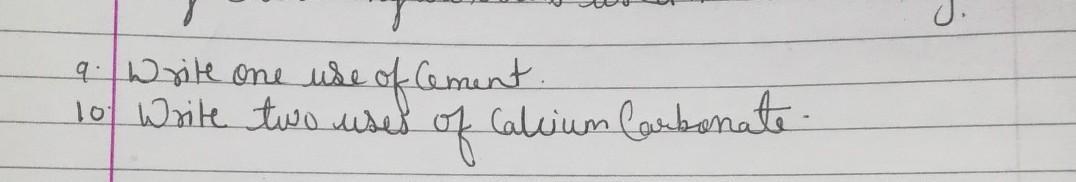 9. Write one use of Cement.
10 Write two uses of Calcium Carbonate.